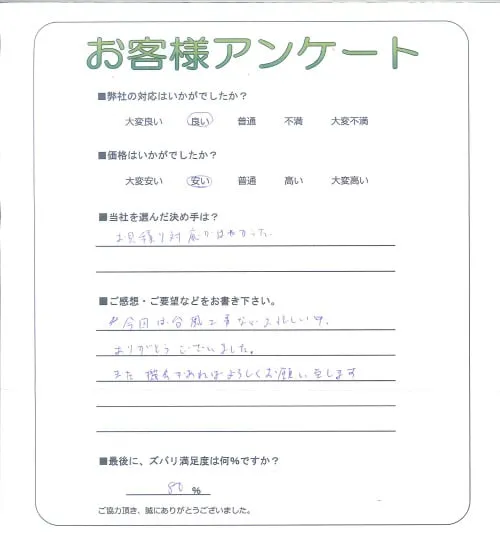 お客様アンケート
■弊社の対応はいかがでしたか？
大変良い 良い 普通 不満 大変不満
■価格はいかがでしたか？
大変安い 安い 普通 高い 大変高い
■当社を選んだ決め手は？
お見積り対応がはやかった.
■ご感想・ご要望などをお書き下さい。
今回は台風工事などお忙しい中.
ありがとうございました。
また機会があればよろしくお願い致します
■最後に、ズバリ満足度は何%ですか？
80 %
ご協力頂き、誠にありがとうございました。